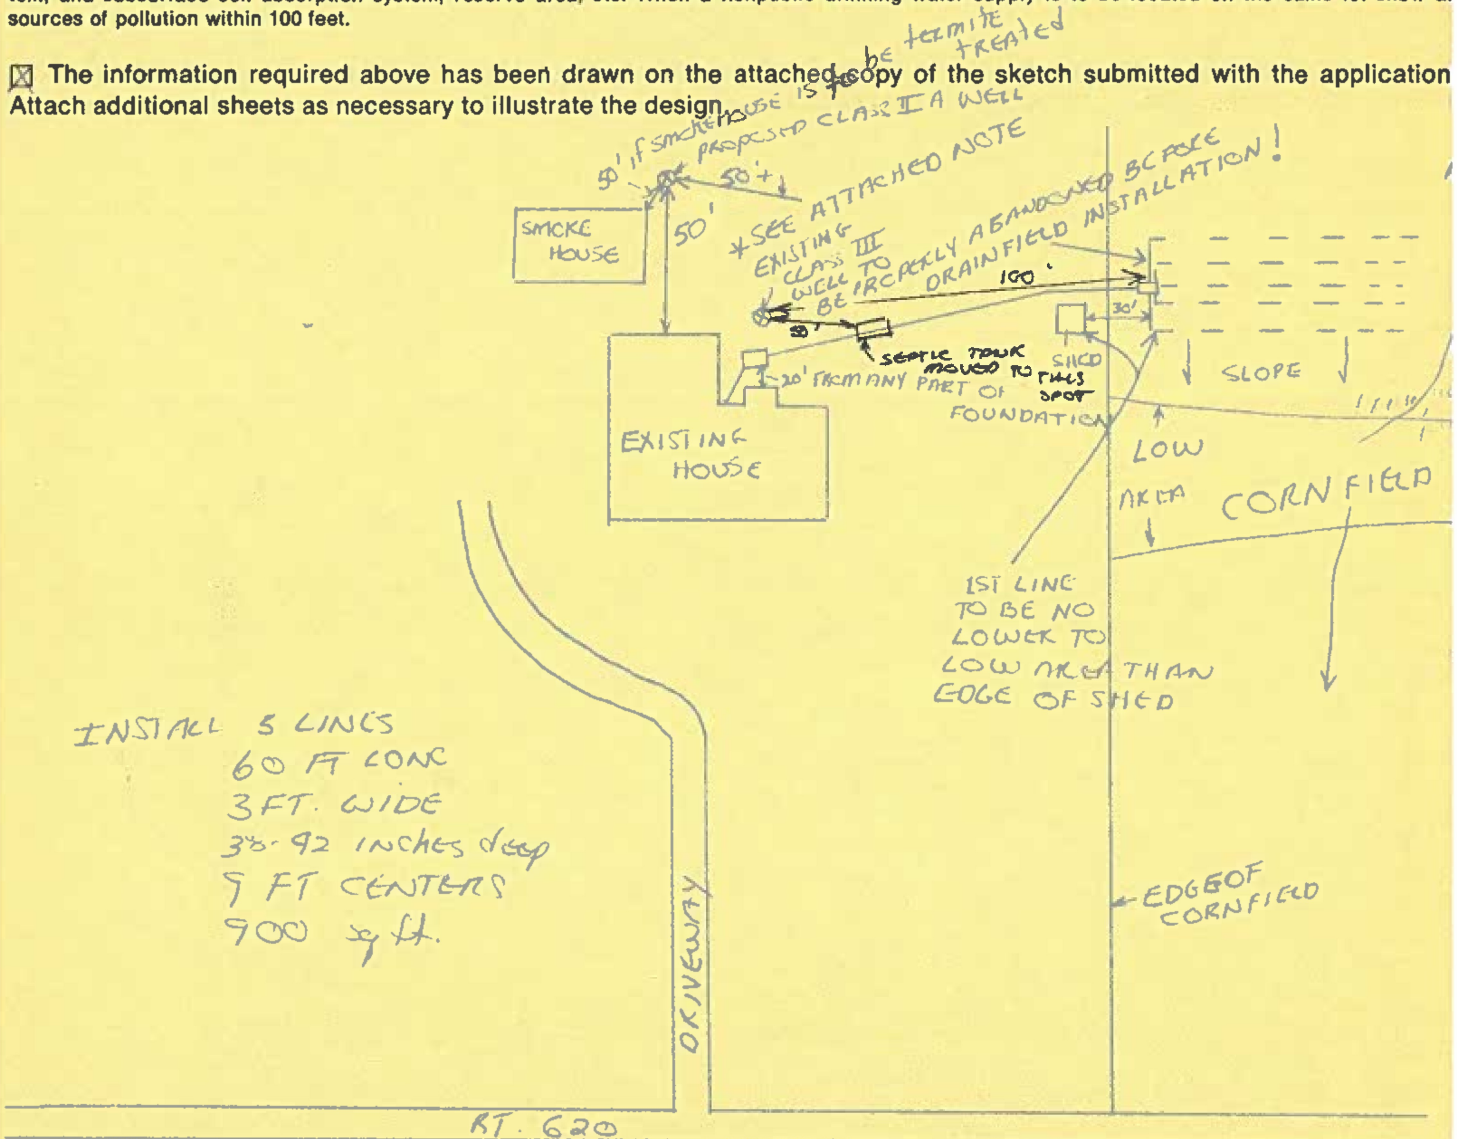 sources of pollution within 100 feet.
☒ The information required above has been drawn on the attached copy of the sketch submitted with the application
Attach additional sheets as necessary to illustrate the design.
50', if SMOKEHOUSE IS to be termite
TREATED
PROPOSED CLASS II A WELL
50'+
50'
SMOKE
HOUSE
*SEE ATTACHED NOTE
EXISTING
CLASS III
WELL TO
BE PROPERLY ABANDONED BEFORE
DRAINFIELD INSTALLATION!
100'
30'
SEPTIC TANK
MOVED TO THIS
SPOT
SHED
20' FROM ANY PART OF
FOUNDATION
SLOPE
EXISTING
HOUSE
LOW
AREA
CORNFIELD
1ST LINE
TO BE NO
LOWER TO
LOW AREA THAN
EDGE OF SHED
INSTALL 5 LINES
60 FT LONG
3 FT. WIDE
inches deep
9 FT CENTERS
900 sq ft.
DRIVEWAY
EDGE OF
CORNFIELD
RT. 620